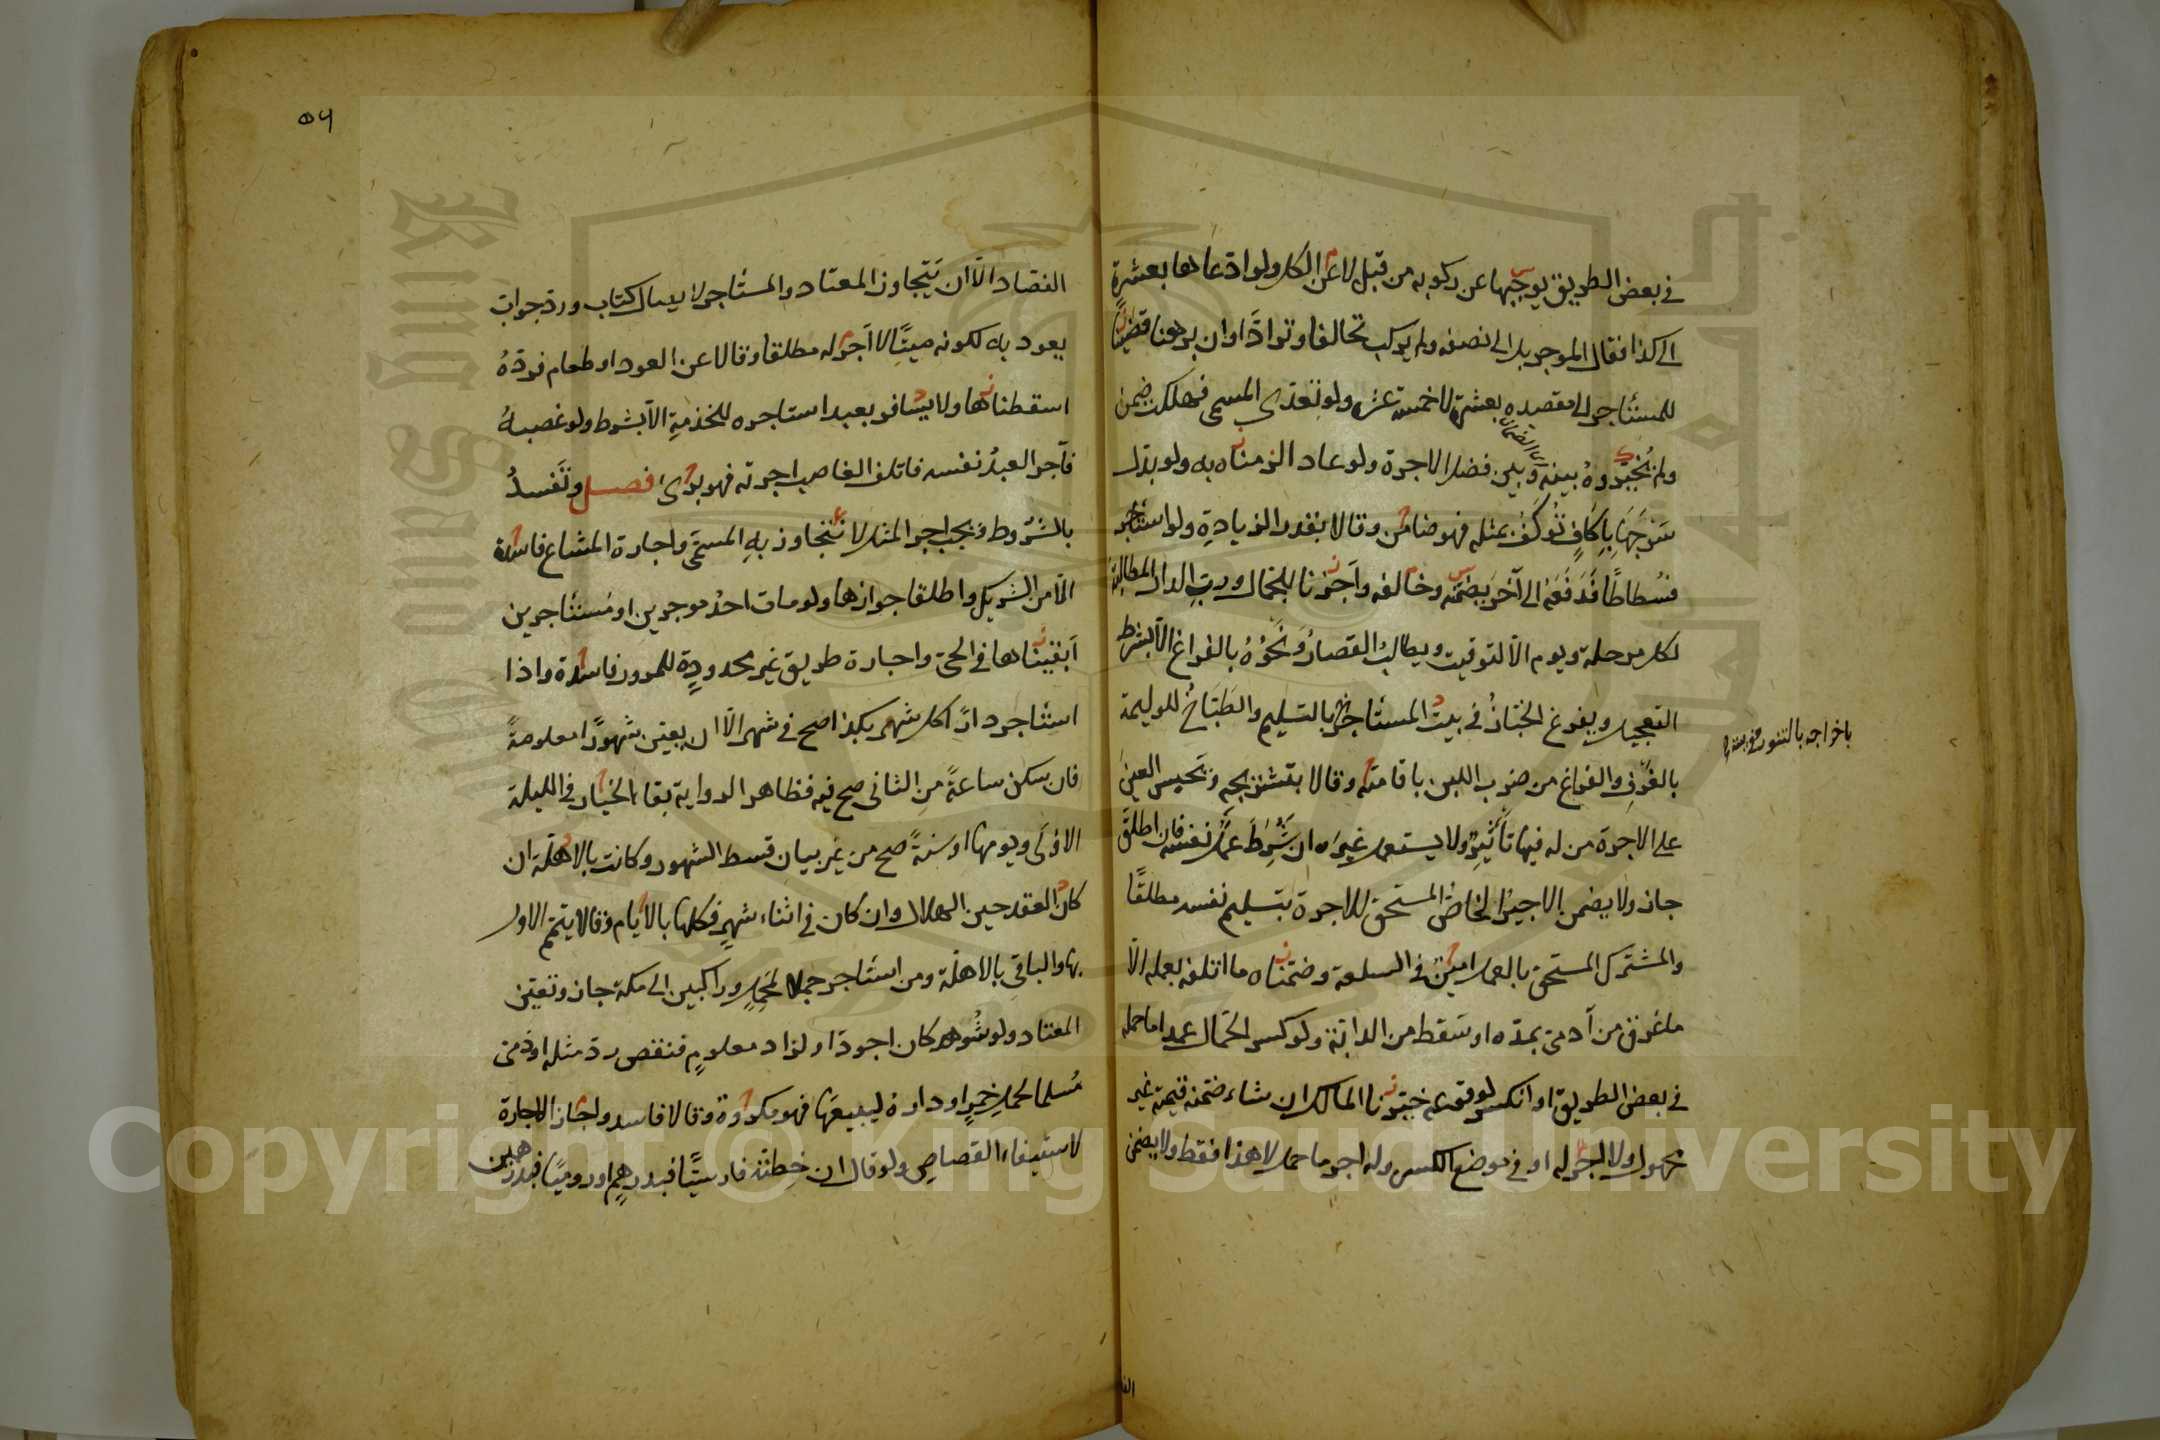 في بعض الطريق يوجبها عن ركوبه من قبل لا عن الكل ولو ادعاها بعشرة
الى كذا فقال الموجر بل الى نصفه ولم يركب تحالفا وترادّا وان برهنا قضينا
للمستأجر الى مقصده بعشرة لا خمسة عشر ولو تعدى المسمى فهلكت ضمن
ولم نُخيّروهُ بينه وبين فضل الاجرة ولو عاد الزمناه به ولو بدّل
سَرجَها بِاِكافٍ تُوكَفُ بمثله فهو ضامن وقالا بقدر الزيادة ولو استأجر
فسُطاطًا فَدَفَعَه الى آخرَ يضمّنه وخالفه واَجزنا للجمال وربِ الدار المطالبة
لكل مرحلة ويوم الّا لتوقيت ويطالبُ القصارُ ونحوُهُ بالفراغ الّا بشرط
التعجيل ويفرغ الخبّازُ في بيت المستأجر بالتسليم والطَبّاخُ للوليمة
باخراجه بالتنور
بالغَرْفِ والفراغ من ضرب اللبن باقامته وقالا بتشريجه وتحبس العين
على الاجرة من له فيها تأثيرٌ ولا يستعمل غيرَه ان شُرِطَ عَمَلُ نفسه فان اطلق
جاز ولا يضمن الاجيرُ الخاصّ المستحق للاجرة بتسليم نفسه مطلقًا
والمشترك المستحق بالعمل امينٌ في السلعة وضمّناه ما اتلفه بعمله الّا
ما غرق من آدمىّ بمدّه او سَقط من الدابّة ولو كسر الحمّال عمدا ما حمله
في بعض الطريق او انكسر لوقوعه خيّرنا المالك ان شاء ضمّنه قيمته غير
محمول ولا اجر له او في موضع الكسر وله اجر ما حمل لا هذا فقط ولا يضمن
الفصاد
٥٦
الفصّاد الّا ان يَتجاوز المعتاد والمستأجر لايصال كتاب وردّ جواب
يعود به لكونه ميتًا لا اَجر له مطلقا وقالا عن العود او طعام فردّهُ
اسقطناها ولا يسافر بعبد استاجره للخدمةِ الّا بشرط ولو غصبهُ
فآجر العبدُ نفسه فاتلف الغاصب اجرته فهو برىء فصل وتَفسدُ
بالشُرُوط ويجب اجر المثل لا نتجاوز بهِ المسمّى واجارة المشاع فاسدة
الّا من الشريك واطلقا جوازها ولو مات احدُ موجرين او مستأجرين
اَبقيناها في الحىّ واجارة طريق غير محدودةٍ للمرور فاسدة واذا
استأجر دارًا كل شهر بكذا صح في شهر الّا ان يعيّن شهورًا معلومةً
فان سكن ساعةً من الثانى صح فيه فظاهر الرواية بقاء الخيار في الليلة
الاولَى ويومها او سَنةً صح من غير بيان قسط الشهور وكانت بالاهلّة ان
كان العقد حين الهلال وان كان في اثناء شهرٍ فكلها بالايام وقالا يتمّم الاول
بها والباقى بالاهلّة ومن استأجر جملا لمَحملٍ وراكبين الى مكة جاز وتعيّن
المعتاد ولو شُوهد كان اجود او لزاد معلومٍ فنقص ردّ مثله او ذمى
مُسلما لحمل خمرٍ او دارهُ ليبيعَها فهو مكروهٌ وقالا فاسد واجاز الاجارة
لاستيفاء القصاص ولو قال ان خِطتَه فارسيًّا فبدرهمٍ او روميًا فبدرهمين